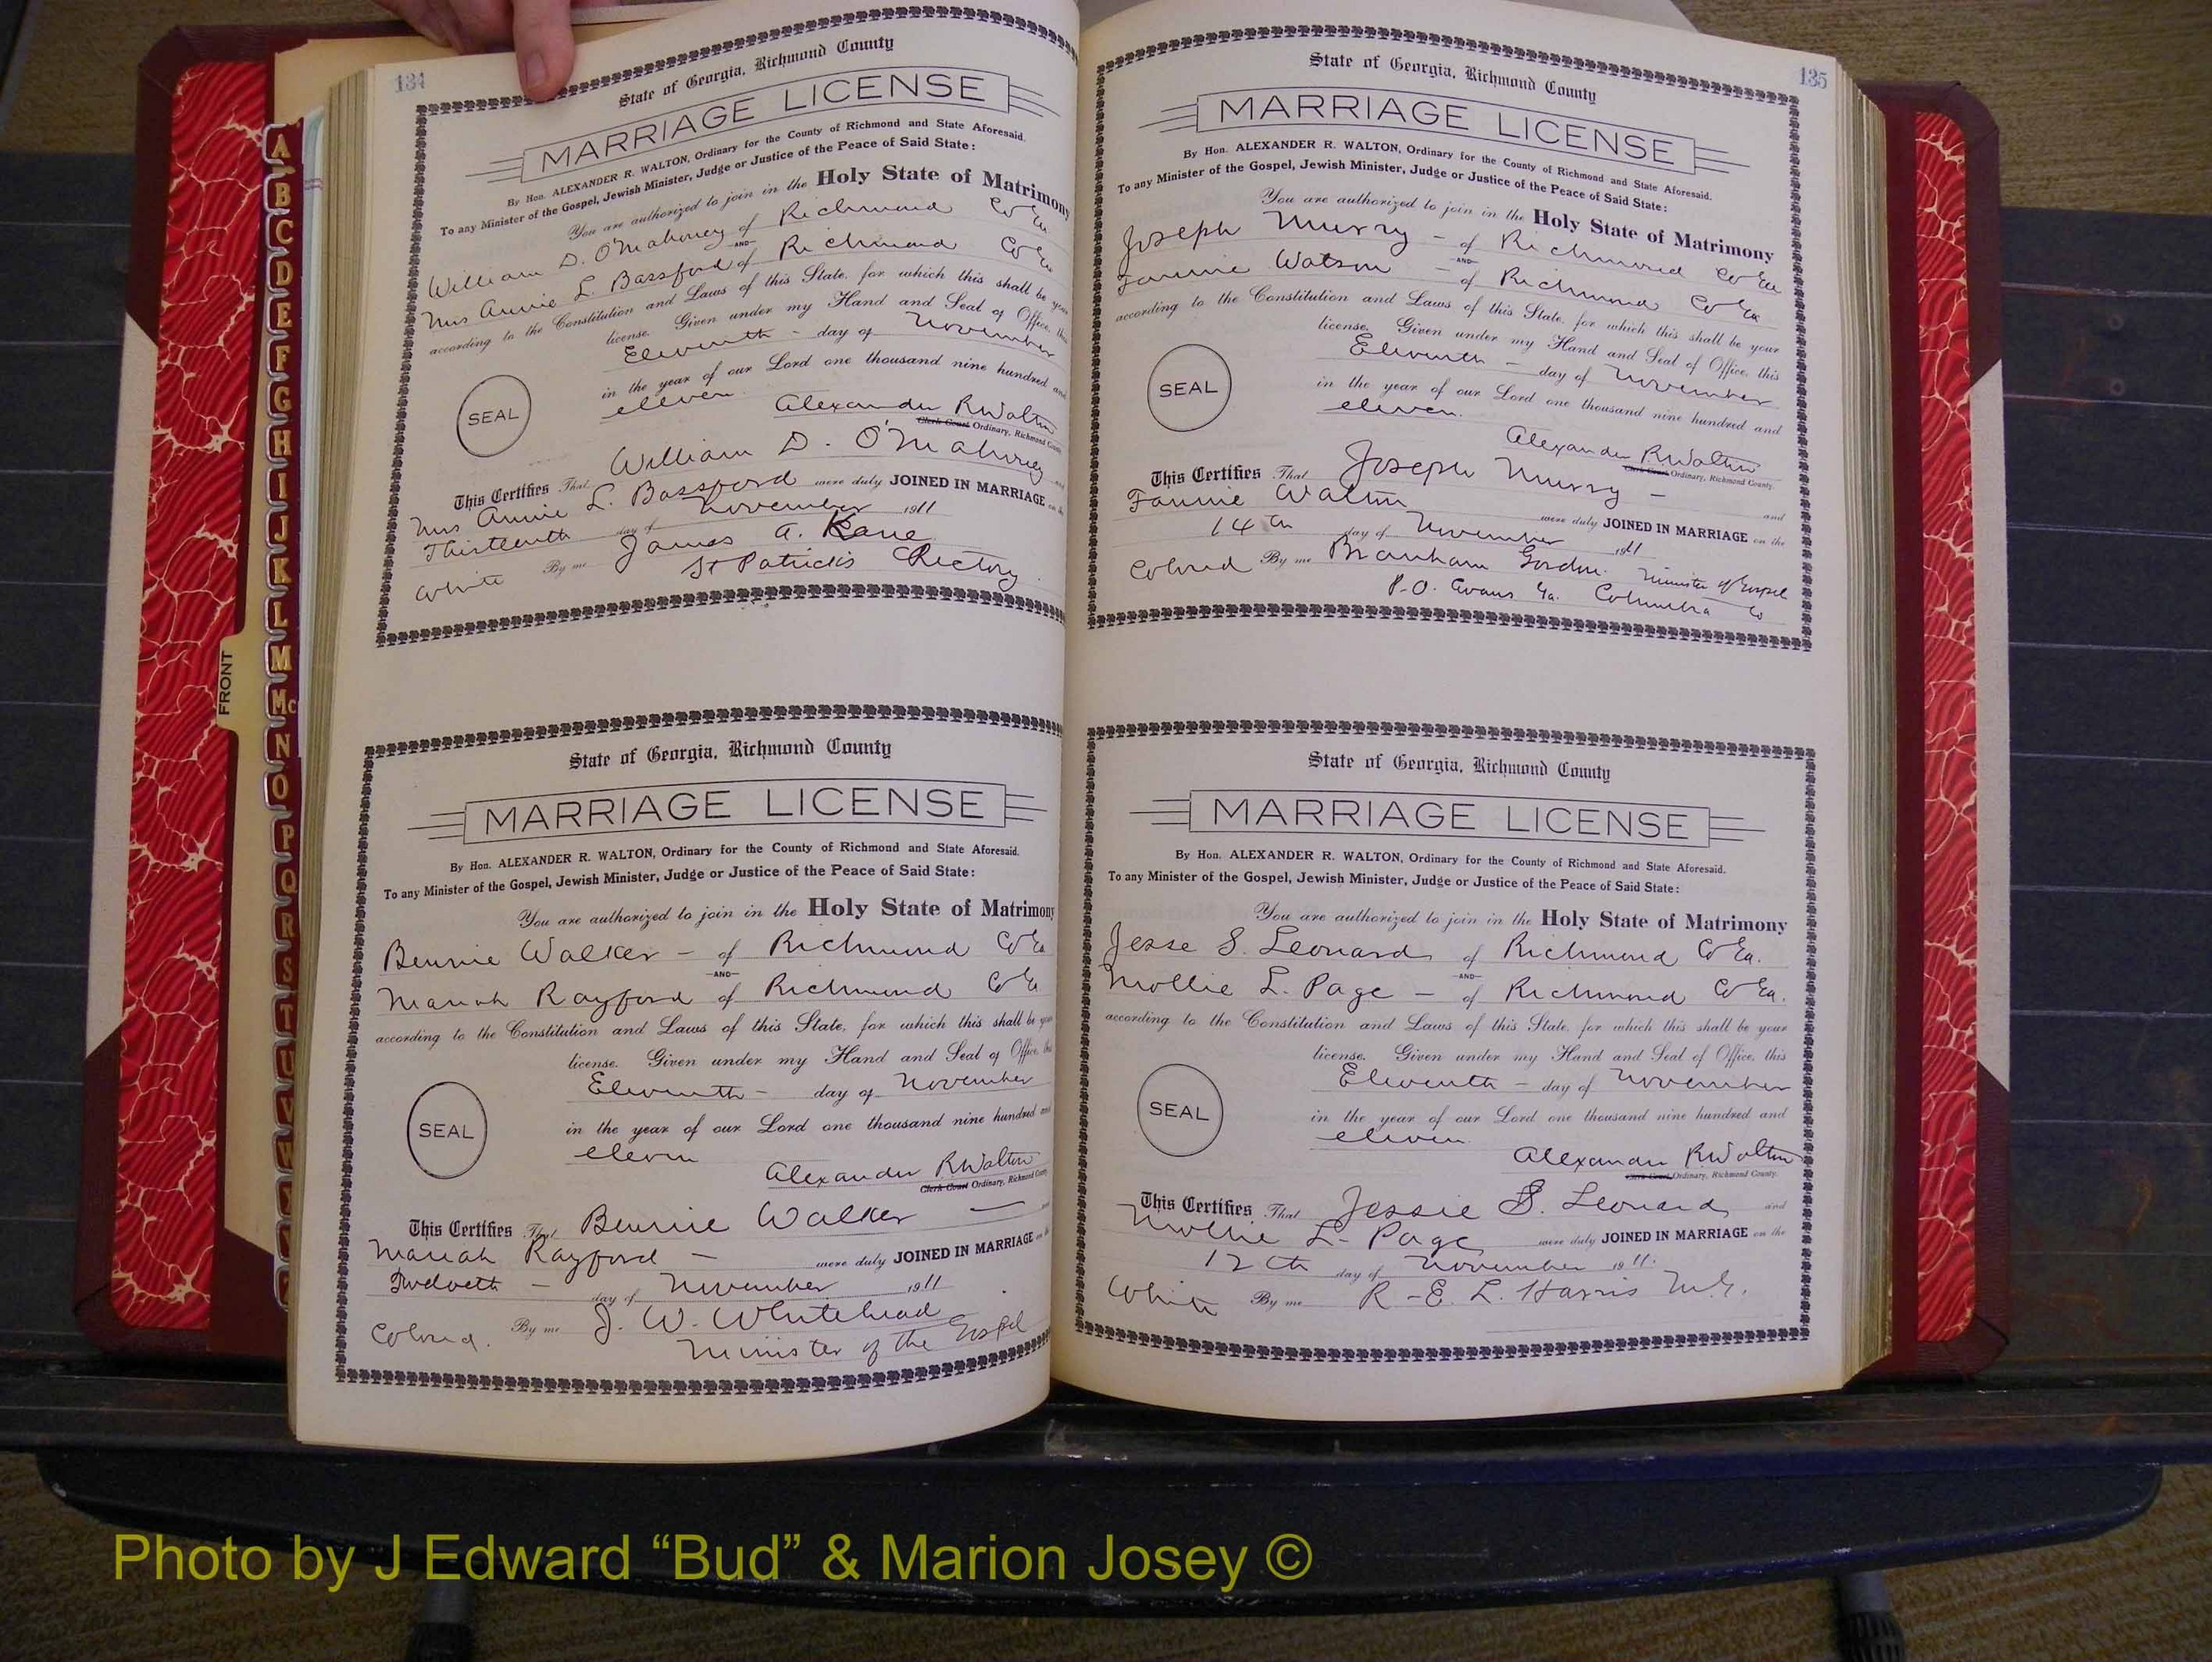 134
State of Georgia, Richmond County
MARRIAGE LICENSE
By Hon. ALEXANDER R. WALTON, Ordinary for the County of Richmond and State Aforesaid.
To any Minister of the Gospel, Jewish Minister, Judge or Justice of the Peace of Said State:
You are authorized to join in the Holy State of Matrimony
William D. O'Mahoney of Richmond Co Ga
AND
Mrs Annie L. Bassford of Richmond Co Ga
according to the Constitution and Laws of this State, for which this shall be your
license. Given under my Hand and Seal of Office, this
Eleventh - day of November
in the year of our Lord one thousand nine hundred and
eleven.
SEAL
Alexander R. Walton
Clerk Court Ordinary, Richmond County
This Certifies That William D. O'Mahoney and
Mrs Annie L. Bassford were duly JOINED IN MARRIAGE on the
Thirteenth day of November 1911
White By me James A. Kane
St Patrick's Rectory.
State of Georgia, Richmond County
MARRIAGE LICENSE
By Hon. ALEXANDER R. WALTON, Ordinary for the County of Richmond and State Aforesaid.
To any Minister of the Gospel, Jewish Minister, Judge or Justice of the Peace of Said State:
You are authorized to join in the Holy State of Matrimony
Bennie Walker - of Richmond Co Ga
AND
Mariah Rayford of Richmond Co Ga
according to the Constitution and Laws of this State, for which this shall be your
license. Given under my Hand and Seal of Office, this
Eleventh - day of November
in the year of our Lord one thousand nine hundred and
eleven
SEAL
Alexander R. Walton
Clerk Court Ordinary, Richmond County
This Certifies That Bennie Walker - and
Mariah Rayford - were duly JOINED IN MARRIAGE on the
Twelveth - day of November 1911
Colored. By me J. W. Whitehead
Minister of the Gospel
135
State of Georgia, Richmond County
MARRIAGE LICENSE
By Hon. ALEXANDER R. WALTON, Ordinary for the County of Richmond and State Aforesaid.
To any Minister of the Gospel, Jewish Minister, Judge or Justice of the Peace of Said State:
You are authorized to join in the Holy State of Matrimony
Joseph Murry - of Richmond Co Ga
AND
Fannie Watson - of Richmond Co Ga
according to the Constitution and Laws of this State, for which this shall be your
license. Given under my Hand and Seal of Office, this
Eleventh - day of November
in the year of our Lord one thousand nine hundred and
eleven.
SEAL
Alexander R. Walton
Clerk Court Ordinary, Richmond County.
This Certifies That Joseph Murry - and
Fannie Walton were duly JOINED IN MARRIAGE on the
14th day of November 1911
Colored By me Branham Gordon. Minister of Gospel
P.O. Evans Ga. Columbia Co
State of Georgia, Richmond County
MARRIAGE LICENSE
By Hon. ALEXANDER R. WALTON, Ordinary for the County of Richmond and State Aforesaid.
To any Minister of the Gospel, Jewish Minister, Judge or Justice of the Peace of Said State:
You are authorized to join in the Holy State of Matrimony
Jesse S. Leonard of Richmond Co Ga.
AND
Mollie L. Page - of Richmond Co Ga.
according to the Constitution and Laws of this State, for which this shall be your
license. Given under my Hand and Seal of Office, this
Eleventh - day of November
in the year of our Lord one thousand nine hundred and
eleven.
SEAL
Alexander R. Walton
Clerk Court Ordinary, Richmond County.
This Certifies That Jessie S. Leonard and
Mollie L. Page were duly JOINED IN MARRIAGE on the
12th day of November 1911.
White By me R - E. L. Harris M.G.
FRONT
A
B
C
D
E
F
G
H
I
J
K
L
M
Mc
N
O
P
Q
R
S
T
U
V
W
Photo by J Edward “Bud” & Marion Josey ©